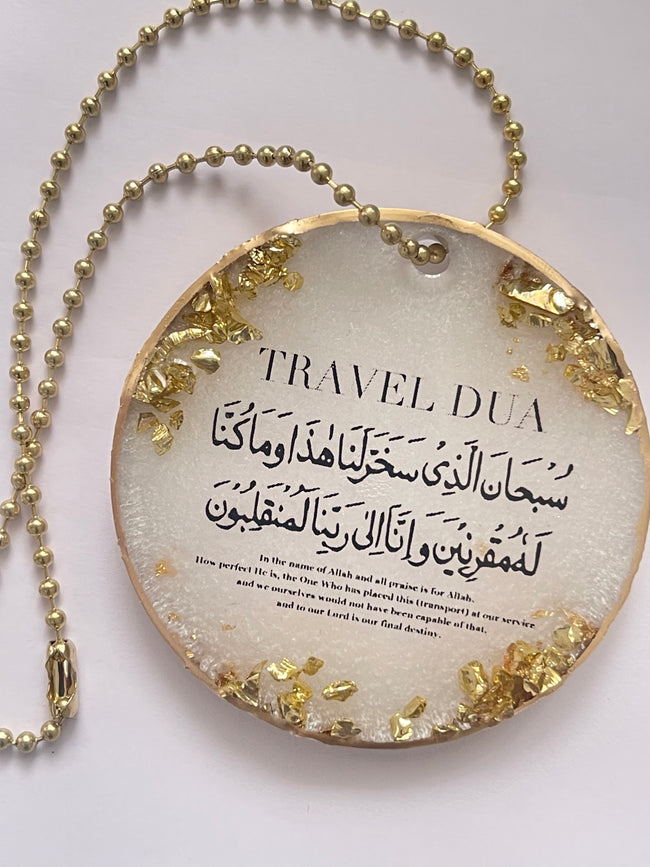 TRAVEL DUA
سُبْحَانَ الَّذِىْ سَخَّرَلَنَا هٰذَا وَمَا كُنَّا
لَهٗ مُقْرِنِيْنَ وَاِنَّا اِلىٰ رَبِّنَا لَمُنْقَلِبُوْنَ
In the name of Allah and all praise is for Allah.
How perfect He is, the One Who has placed this (transport) at our service
and we ourselves would not have been capable of that,
and to our Lord is our final destiny.